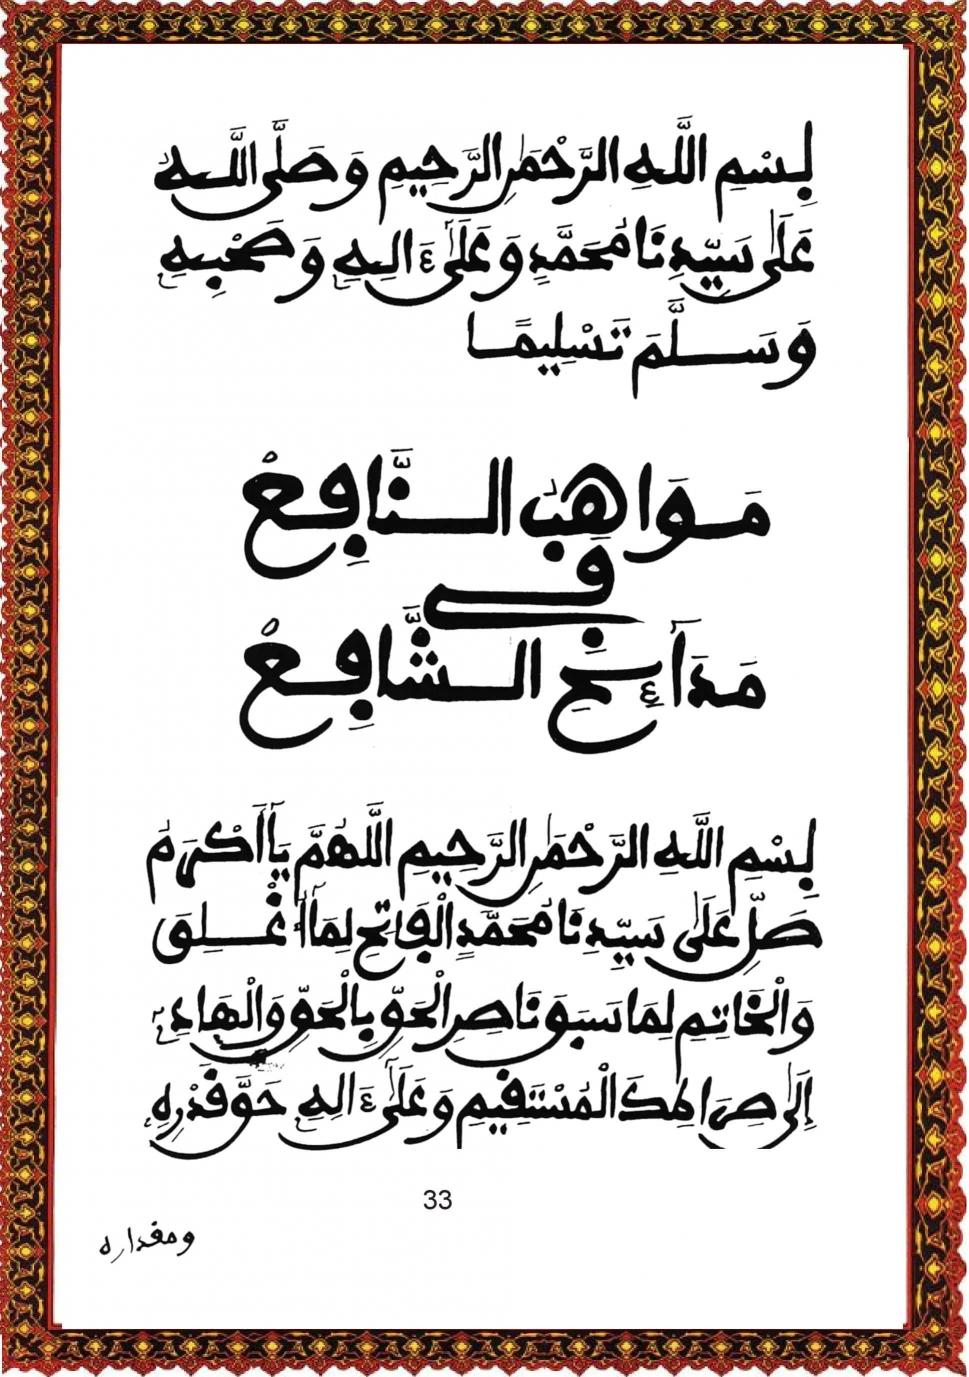 بِسْمِ اللَّهِ الرَّحْمَٰنِ الرَّحِيمِ وَصَلَّى اللَّهُ
عَلَىٰ سَيِّدِنَا مُحَمَّدٍ وَعَلَىٰ ءَالِهِ وَصَحْبِهِ
وَسَلَّمَ تَسْلِيمًا
مَوَاهِبُ النَّافِعْ
فِي
مَدَآئِحِ الشَّافِعْ
بِسْمِ اللَّهِ الرَّحْمَٰنِ الرَّحِيمِ اللَّهُمَّ يَآ أَكْرَمَ
صَلِّ عَلَىٰ سَيِّدِنَا مُحَمَّدٍ الْفَاتِحِ لِمَآ أُغْلِقَ
وَالْخَاتِمِ لِمَا سَبَقَ نَاصِرِ الْحَقِّ بِالْحَقِّ وَالْهَادِي
إِلَىٰ صِرَاطِكَ الْمُسْتَقِيمِ وَعَلَىٰ ءَالِهِ حَقَّ قَدْرِهِ
33
ومقداره